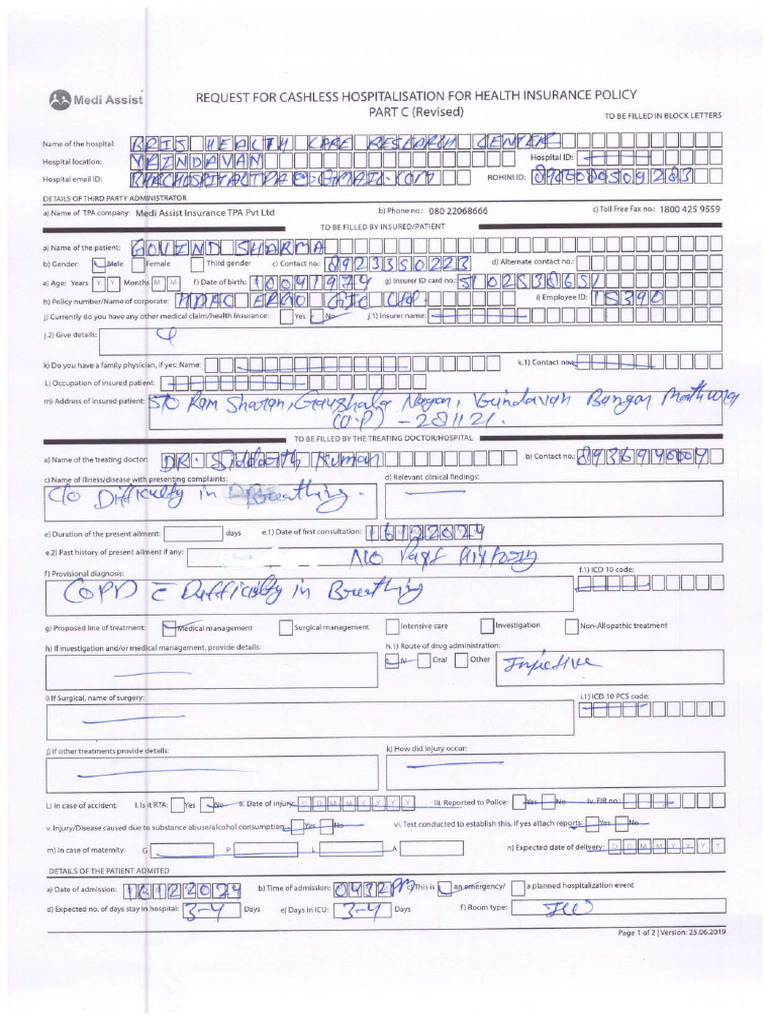 Medi Assist
REQUEST FOR CASHLESS HOSPITALISATION FOR HEALTH INSURANCE POLICY
PART C (Revised)
TO BE FILLED IN BLOCK LETTERS
Name of the hospital: BRIS HEALTH CARE RESEARCH CENTER
Hospital location: VRINDAVAN Hospital ID:
Hospital email ID: ROHINI ID:
DETAILS OF THIRD PARTY ADMINISTRATOR
a) Name of TPA company: Medi Assist Insurance TPA Pvt Ltd b) Phone no.: 080 22068666 c) Toll Free Fax no.: 1800 425 9559
TO BE FILLED BY INSURED/PATIENT
a) Name of the patient: GOVIND SHARMA
b) Gender: Male Female Third gender c) Contact no.: 8923350223 d) Alternate contact no.:
e) Age: Years Y Y Months M M f) Date of birth: 10041974 g) Insurer ID card no.:
h) Policy number/Name of corporate: HDFC ERGO i) Employee ID: 15390
j) Currently do you have any other medical claim/health Insurance: Yes No j.1) Insurer name:
j.2) Give details:
k) Do you have a family physician, if yes: Name: k.1) Contact no.
L) Occupation of insured patient:
m) Address of insured patient: S/O Ram Sharan, Gaushala Nagar, Vrindavan Bangar Mathura
(U.P) - 281121.
TO BE FILLED BY THE TREATING DOCTOR/HOSPITAL
a) Name of the treating doctor: DR. Siddharth Kumar b) Contact no.:
c) Name of illness/disease with presenting complaints: d) Relevant clinical findings:
C/o Difficulty in Breathing.
e) Duration of the present ailment: days e.1) Date of first consultation: 16122024
e.2) Past history of present ailment if any: No Past History
f) Provisional diagnosis: f.1) ICD 10 code:
COPD c Difficulty in Breathing
g) Proposed line of treatment: Medical management Surgical management Intensive care Investigation Non-Allopathic treatment
h) If investigation and/or medical management, provide details: h.1) Route of drug administration:
IV Oral Other
i) If Surgical, name of surgery: i.1) ICD 10 PCS code:
j) If other treatments provide details: k) How did injury occur:
L) In case of accident: I. Is it RTA: Yes No II. Date of injury: D D M M Y Y Y Y III. Reported to Police: Yes No iv. FIR no.:
v. Injury/Disease caused due to substance abuse/alcohol consumption: Yes No vi. Test conducted to establish this, If yes attach reports: Yes No
m) In case of maternity: G P L A n) Expected date of delivery: D D M M Y Y Y Y
DETAILS OF THE PATIENT ADMITED
a) Date of admission: 16122024 b) Time of admission: 0432 pm c) This is an emergency/ a planned hospitalization event
d) Expected no. of days stay in hospital: 3-4 Days e) Days in ICU: 3-4 Days f) Room type: ICU
Page 1 of 2 | Version: 25.06.2019